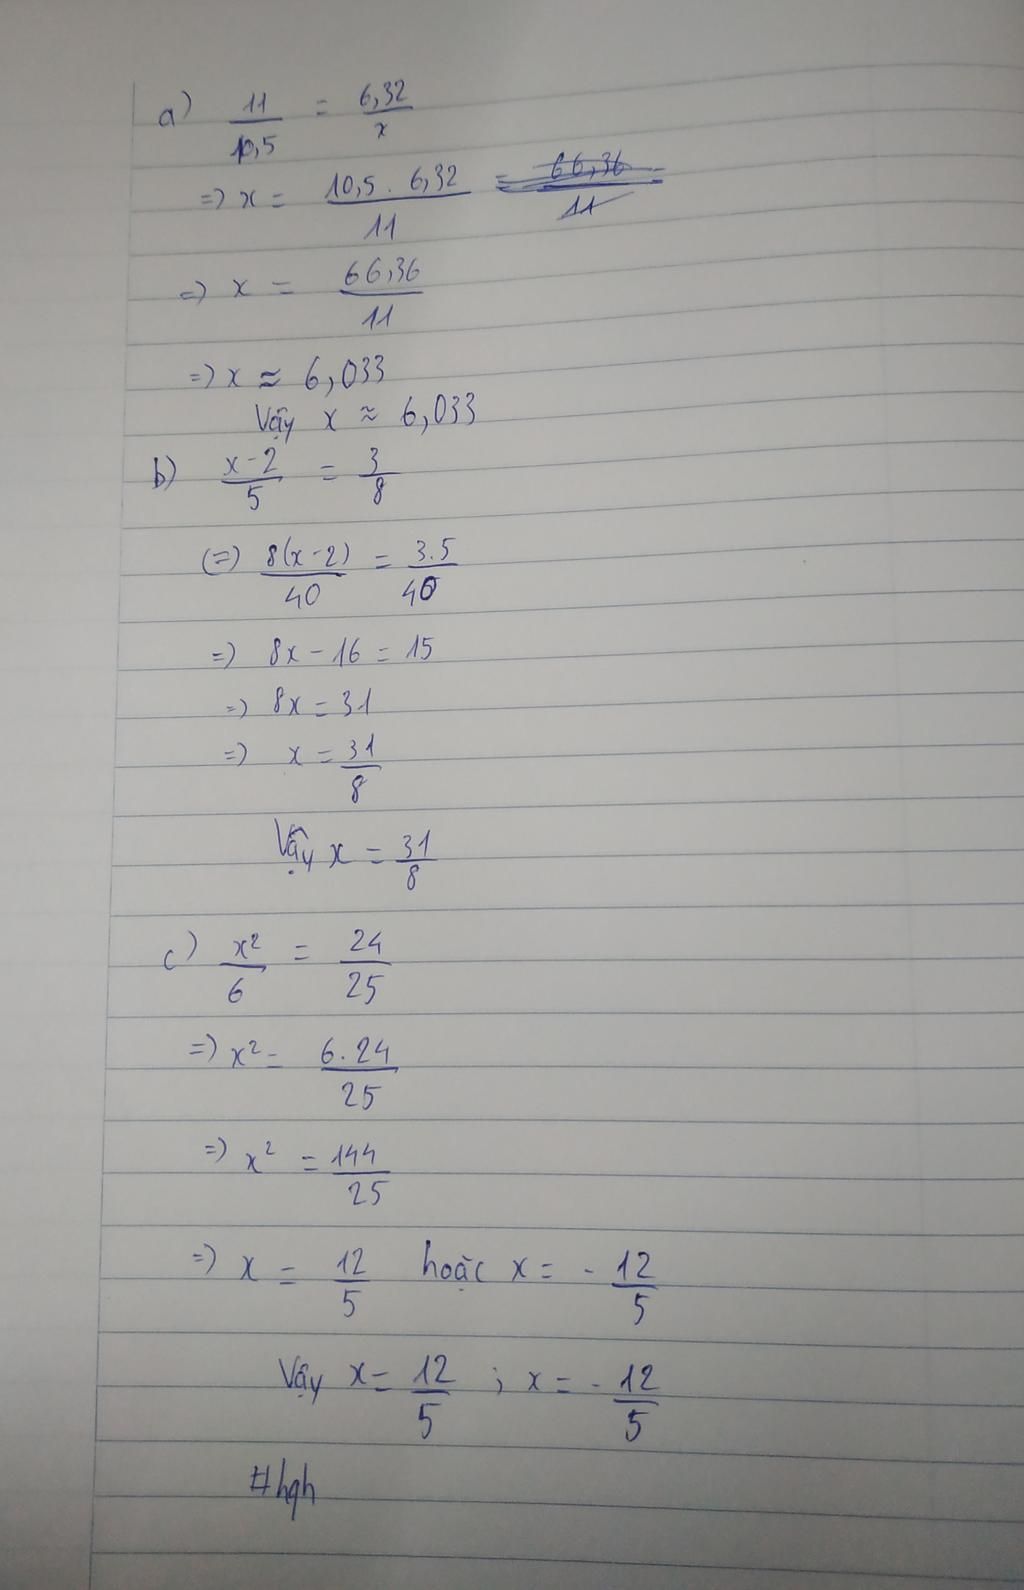 a) 11/10,5 = 6,32/x
=> x = 10,5 . 6,32/11 = 66,36/11
=> x = 66,36/11
=> x ≈ 6,033
Vậy x ≈ 6,033
b) x-2/5 = 3/8
(=) 8(x-2)/40 = 3.5/40
=) 8x - 16 = 15
=) 8x = 31
=) x = 31/8
Vậy x = 31/8
c) x²/6 = 24/25
=) x² = 6.24/25
=) x² = 144/25
=) x = 12/5 hoặc x = - 12/5
Vậy x = 12/5 ; x = - 12/5
#hgh